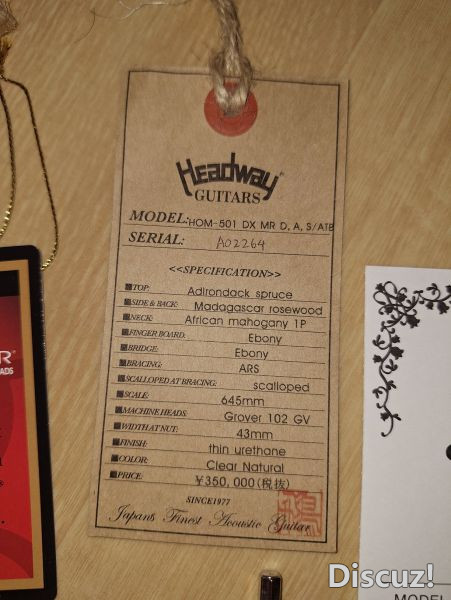 Headway
GUITARS
MODEL: HOM-501 DX MR D, A, S/ATB
SERIAL: A02264
<<SPECIFICATION>>
TOP: Adirondack spruce
SIDE & BACK: Madagascar rosewood
NECK: African mahogany 1P
FINGER BOARD: Ebony
BRIDGE: Ebony
BRACING: ARS
SCALLOPED AT BRACING: scalloped
SCALE: 645mm
MACHINE HEADS: Grover 102 GV
WIDTH AT NUT: 43mm
FINISH: thin urethane
COLOR: Clear Natural
PRICE: ¥350,000(税抜)
SINCE1977
Japan's Finest Acoustic Guitar
R
ADS
MODEL
Discuz!